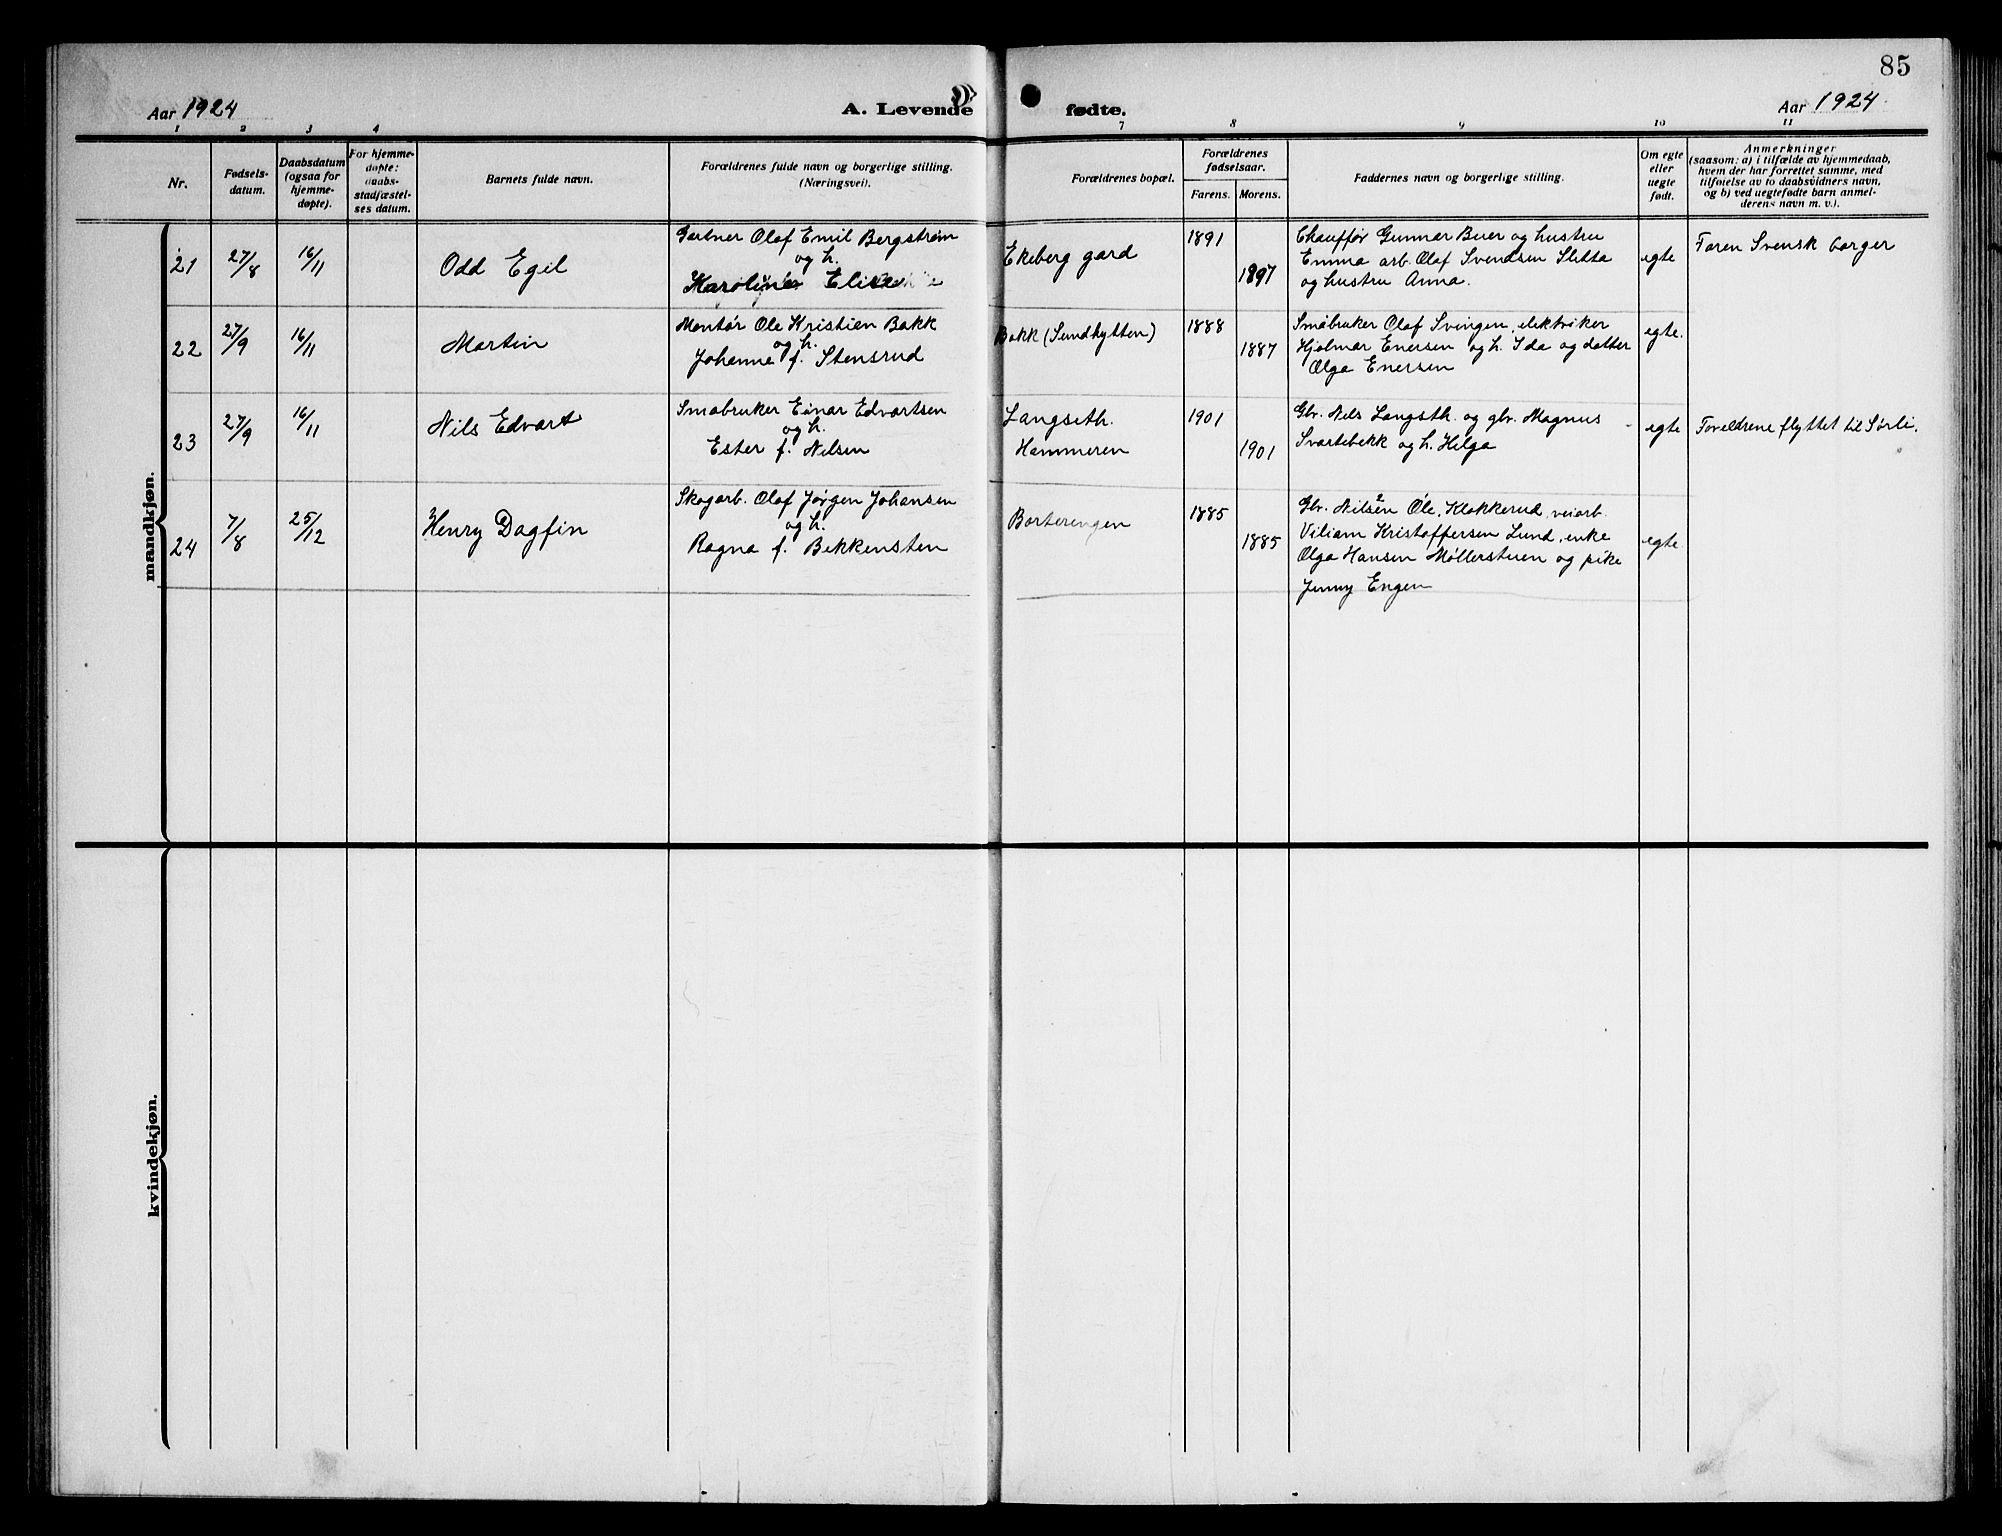 85
Aar 1924
A. Levende
fødte.
Aar 1924
1 2 3 4
7 8 9 10 11
Nr.
Fødsels-
datum.
Daabsdatum
(ogsaa for
hjemme-
døpte).
For hjemme-
døpte:
daabs-
stadfæstel-
ses datum.
Barnets fulde navn.
Forældrenes fulde navn og borgerlige stilling.
(Næringsvei).
Forældrenes bopæl.
Forældrenes
fødselsaar.
Farens. Morens.
Faddernes navn og borgerlige stilling.
Om egte
eller
uegte
født.
Anmerkninger
(saasom: a) i tilfælde av hjemmedaab,
hvem der har forrettet samme, med
tilføielse av to daabsvidners navn,
og b) ved uegtefødte barn anmel-
derens navn m. v.).
mandkjøn.
21
27/8
16/11
Odd Egil
Gartner Olaf Emil Bergstrøm
og h.
Elise
Ekeberg gard
1891
1897
Chauffør Gunnar Buer og hustru
Emma arb. Olaf Svendsen Sletta
og hustru Anna.
egte
Faren Svensk borger
22
27/9
16/11
Martin
Montør Ole Kristien Bakk
og h.
Johanne f. Stensrud
Bakk (Sundhytten)
1888
1887
Småbruker Olaf Svingen, elektriker
Hjalmar Enersen og h. Ida og datter
Olga Enersen
egte.
23
27/9
16/11
Nils Edvart
Småbruker Einar Edvartsen
og h.
Ester f. Nilsen
Langseth.
Hammeren
1901
1901
Gbr. Nils Langsth. og gbr. Magnus
Svartebekk og h. Helga
egte
Foreldrene flyttet til Sørli.
24
7/8
25/12
Henry Dagfin
Skogarb. Olaf Jørgen Johansen
og h.
Ragna f. Bekkensten
Borterengen
1885
1885
Gbr. Nilsen Ole, Klokkerud, veiarb.
Viliam Kristoffersen Lund, enke
Olga Hansen Møllerstuen og pike
Jenny Engen
egte
kvindekjøn.